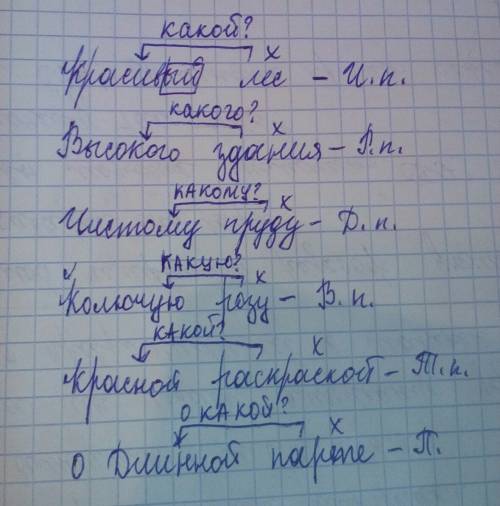 какой?
х
Красивый лес – И.п.
какого?
х
Высокого здания – Р.п.
КАКОМУ?
х
Чистому пруду – Д.п.
КАКУЮ?
х
Колючую розу – В.п.
КАКОЙ?
х
Красной раскраской – Т.п.
О КАКОЙ?
х
О Длинной парте – П.